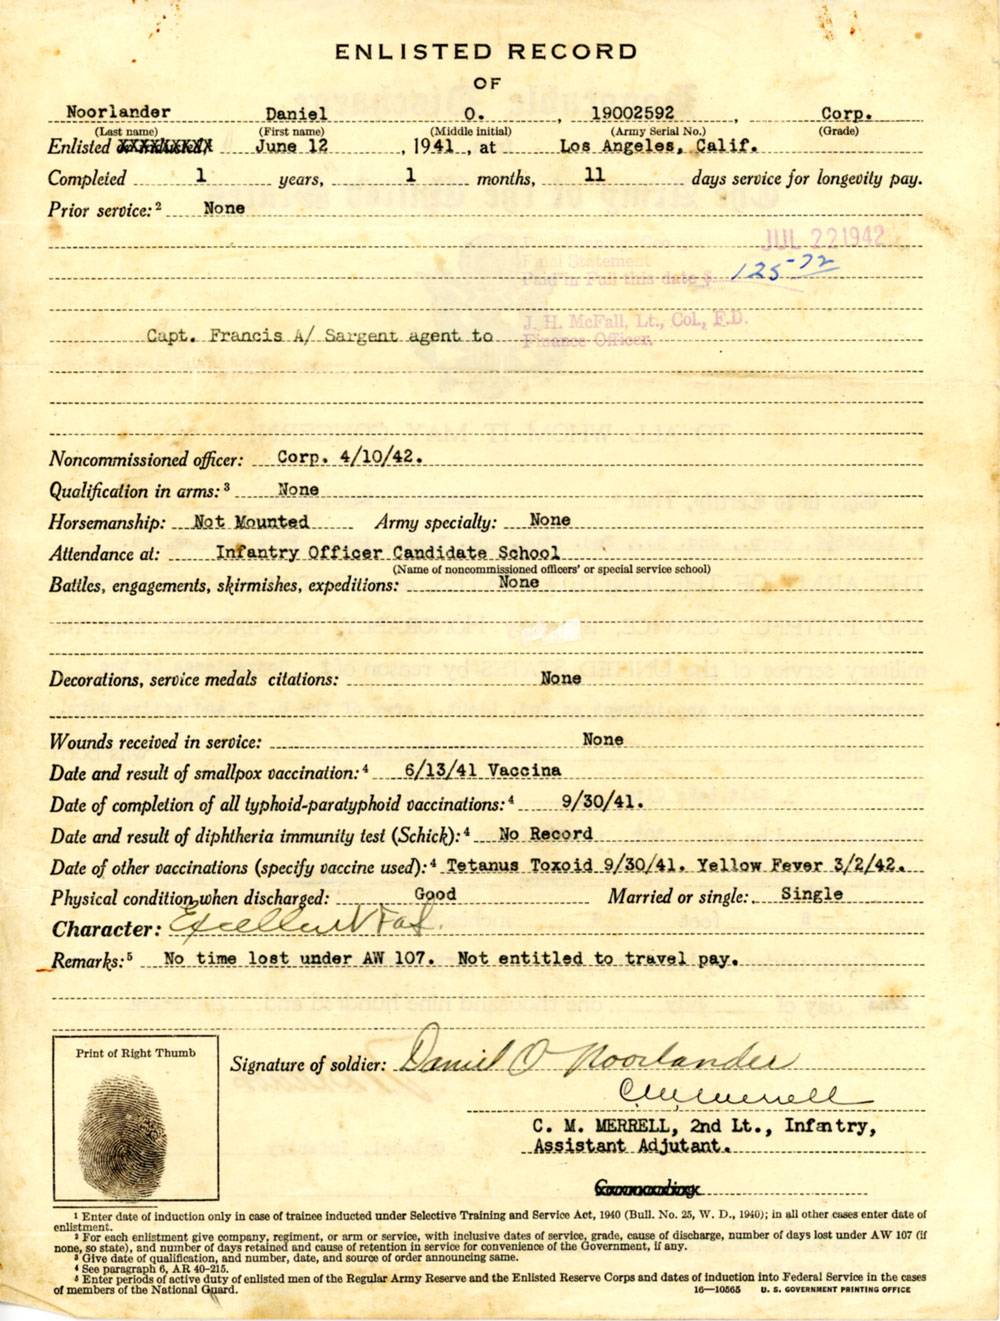 ENLISTED RECORD
OF
Noorlander Daniel O. , 19002592 , Corp.
(Last name) (First name) (Middle initial) (Army Serial No.) (Grade)
Enlisted XXXXXXXX June 12 , 1941 , at Los Angeles, Calif.
Completed 1 years, 1 months, 11 days service for longevity pay.
Prior service:² None
JUL 22 1942
Final Statement
Paid in Full this date $ 125.72
J. H. McFall, Lt., Col., F.D.
Capt. Francis A/ Sargent agent to
Finance Officer.
Noncommissioned officer: Corp. 4/10/42.
Qualification in arms:³ None
Horsemanship: Not Mounted Army specialty: None
Attendance at: Infantry Officer Candidate School
(Name of noncommissioned officers' or special service school)
Battles, engagements, skirmishes, expeditions: None
Decorations, service medals citations: None
Wounds received in service: None
Date and result of smallpox vaccination:⁴ 6/13/41 Vaccina
Date of completion of all typhoid-paratyphoid vaccinations:⁴ 9/30/41.
Date and result of diphtheria immunity test (Schick):⁴ No Record
Date of other vaccinations (specify vaccine used):⁴ Tetanus Toxoid 9/30/41. Yellow Fever 3/2/42.
Physical condition when discharged: Good Married or single: Single
Character: Excellent
Remarks:⁵ No time lost under AW 107. Not entitled to travel pay.
Print of Right Thumb
Signature of soldier: Daniel O Noorlander
C. M. Merrell
C. M. MERRELL, 2nd Lt., Infantry,
Assistant Adjutant.
¹ Enter date of induction only in case of trainee inducted under Selective Training and Service Act, 1940 (Bull. No. 25, W. D., 1940); in all other cases enter date of
enlistment.
² For each enlistment give company, regiment, or arm or service, with inclusive dates of service, grade, cause of discharge, number of days lost under AW 107 (if
none, so state), and number of days retained and cause of retention in service for convenience of the Government, if any.
³ Give date of qualification, and number, date, and source of order announcing same.
⁴ See paragraph 6, AR 40-215.
⁵ Enter periods of active duty of enlisted men of the Regular Army Reserve and the Enlisted Reserve Corps and dates of induction into Federal Service in the cases
of members of the National Guard.
16—10565 U. S. GOVERNMENT PRINTING OFFICE